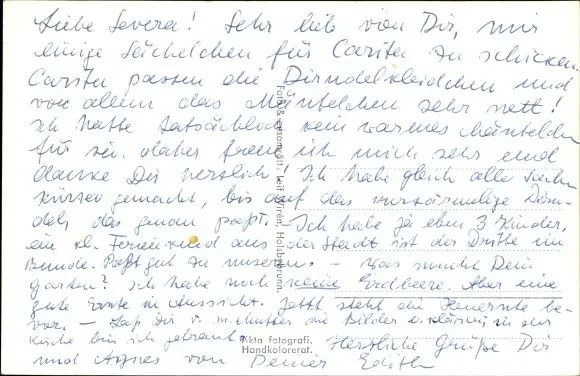 Liebe Severa! Sehr lieb von Dir, mir
einige Sächelchen für Carita zu schicken
Carita passen die Dirndelkleidchen und
vor allem das Mäntelchen sehr nett!
Ich hatte tatsächlich kein warmes Mäntelchen
für sie, daher freue ich mich sehr und
danke Dir herzlich! Ich habe gleich alle Sachen
kürzer gemacht, bis auf das rotärmelige Dirn-
del, das genau paßt. Ich habe ja eben 3 Kinder,
ein kl. Ferienkind aus der Stadt ist der Dritte im
Bunde. Paßt gut zu unseren. – Was macht Dein
Garten? Ich habe noch keine Erdbeere. Aber eine
gute Ernte in Aussicht. Jetzt steht die Heuernte be-
vor. – Laß Dir v. m. Mutter die Bilder erklären in der
Küche bin ich gebraucht. Herzliche Grüße Dir
und Agnes von Deiner Edith
Foto & ensamrätt: Leif Wirén, Hallsberg
Äkta fotografi.
Handkolorerat.